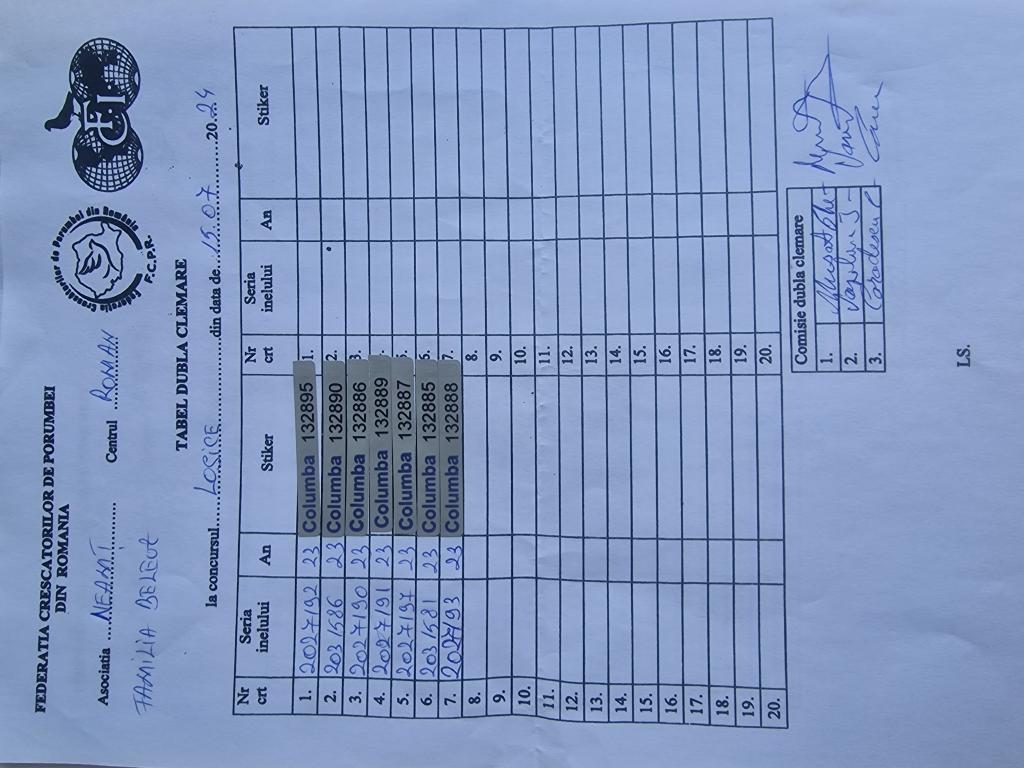 FEDERATIA CRESCATORILOR DE PORUMBEI
DIN ROMANIA
Federația Crescătorilor de Porumbei din România
F.C.P.R.
FCI
Asociatia ....NEAMȚ........... Centrul ....ROMAN
FAMILIA BELEUT
TABEL DUBLA CLEMARE
la concursul......LOSICE........................din data de...15.07..........20..24
Nr crt Seria inelului An Stiker Nr crt Seria inelului An Stiker
1. 2027192 23 Columba 132895 1.
2. 2031586 23 Columba 132890 2.
3. 2027190 23 Columba 132886 3.
4. 2027191 23 Columba 132889 4.
5. 2027197 23 Columba 132887 5.
6. 2031581 23 Columba 132885 6.
7. 2027193 23 Columba 132888 7.
8. 8.
9. 9.
10. 10.
11. 11.
12. 12.
13. 13.
14. 14.
15. 15.
16. 16.
17. 17.
18. 18.
19. 19.
20. 20.
Comisie dubla clemare
1.
2.
3.
LS.